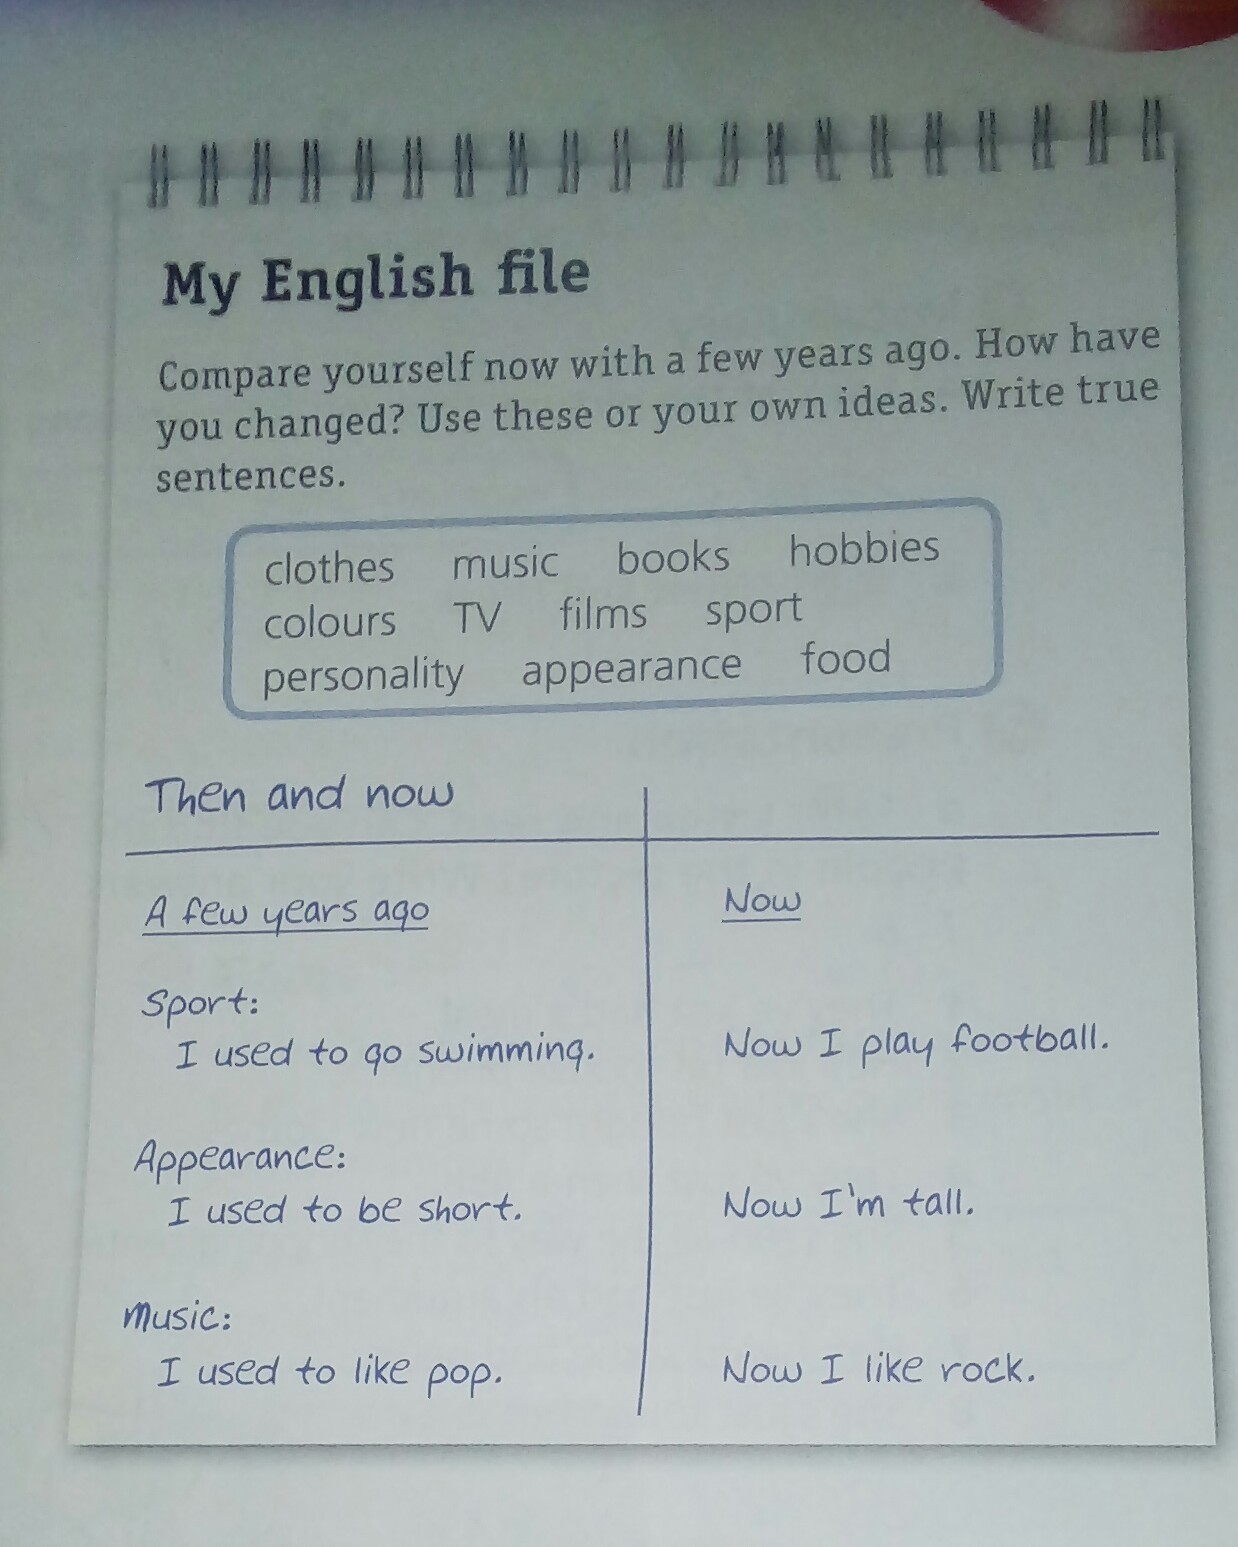 My English file
Compare yourself now with a few years ago. How have
you changed? Use these or your own ideas. Write true
sentences.
clothes music books hobbies
colours TV films sport
personality appearance food
Then and now
A few years ago Now
Sport:
I used to go swimming. Now I play football.
Appearance:
I used to be short. Now I'm tall.
Music:
I used to like pop. Now I like rock.